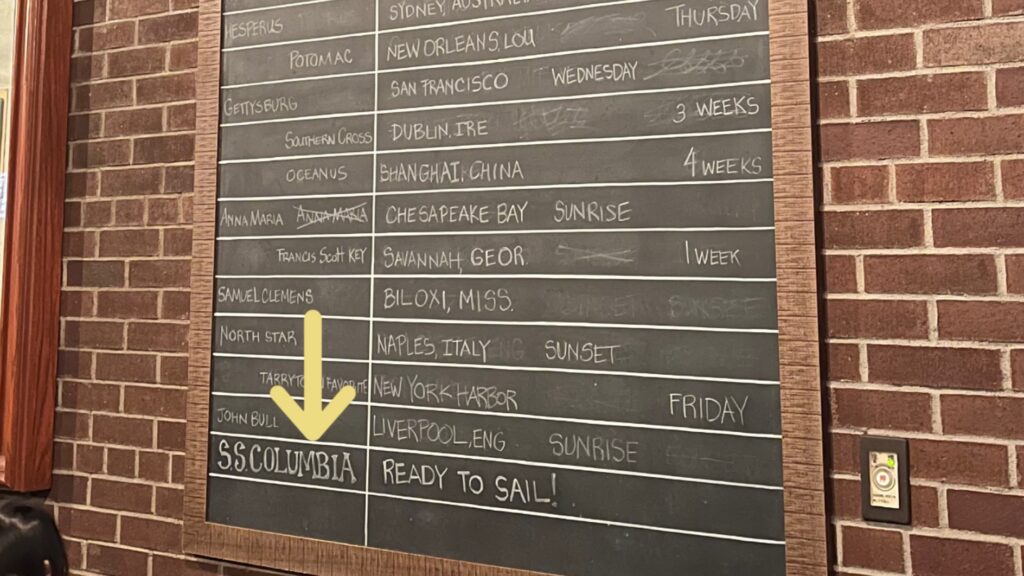 HESPERUS SYDNEY, AUSTRALIA
THURSDAY
POTOMAC NEW ORLEANS, LOU
GETTYSBURG SAN FRANCISCO WEDNESDAY
SOUTHERN CROSS DUBLIN, IRE 3 WEEKS
OCEANUS SHANGHAI, CHINA 4 WEEKS
ANNA MARIA ANNA MARIA CHESAPEAKE BAY SUNRISE
FRANCIS SCOTT KEY SAVANNAH, GEOR 1 WEEK
SAMUEL CLEMENS BILOXI, MISS.
NORTH STAR NAPLES, ITALY SUNSET
FAVORITE NEW YORK HARBOR FRIDAY
JOHN BULL LIVERPOOL, ENG SUNRISE
S.S COLUMBIA READY TO SAIL!